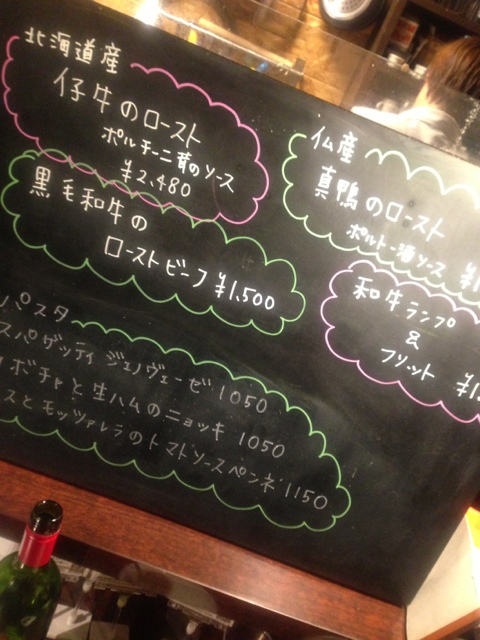 北海道産
仔牛のロースト
ポルチーニ茸のソース
¥2,480
黒毛和牛の
ローストビーフ ¥1,500
仏産
真鴨のロースト
ポルトー酒ソース ¥1
和牛ランプ
&
フリット ¥1
パスタ
スパゲッティ ジェノヴェーゼ 1050
ボチャと生ハムのニョッキ 1050
スとモッツァレラのトマトソースペンネ 1150